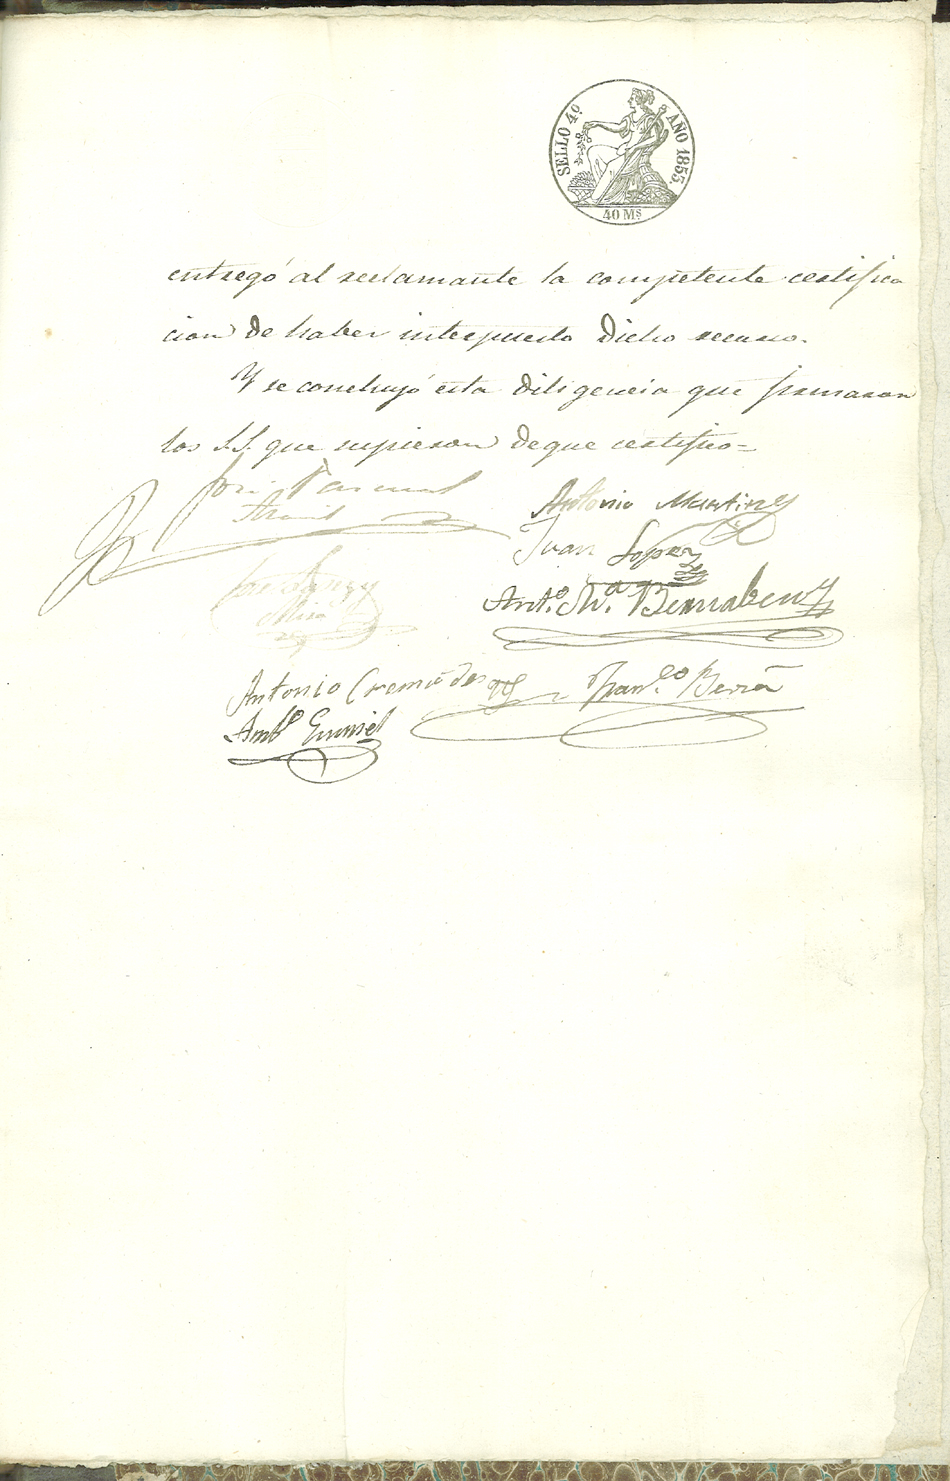 SELLO 4º AÑO 1855.
40 Ms
entregó al reclamante la competente certifica
cion de haber interpuesto dicho recurso.
Y se concluyó esta diligencia que firmaron
los S.S. que supieron de que certifico=
José Pascual
Antonio Martinez
Juan Lopez
Mira
Ant.º M.ª Bernabeu
Antonio Cremades
Fran.co Berná
Amb.º